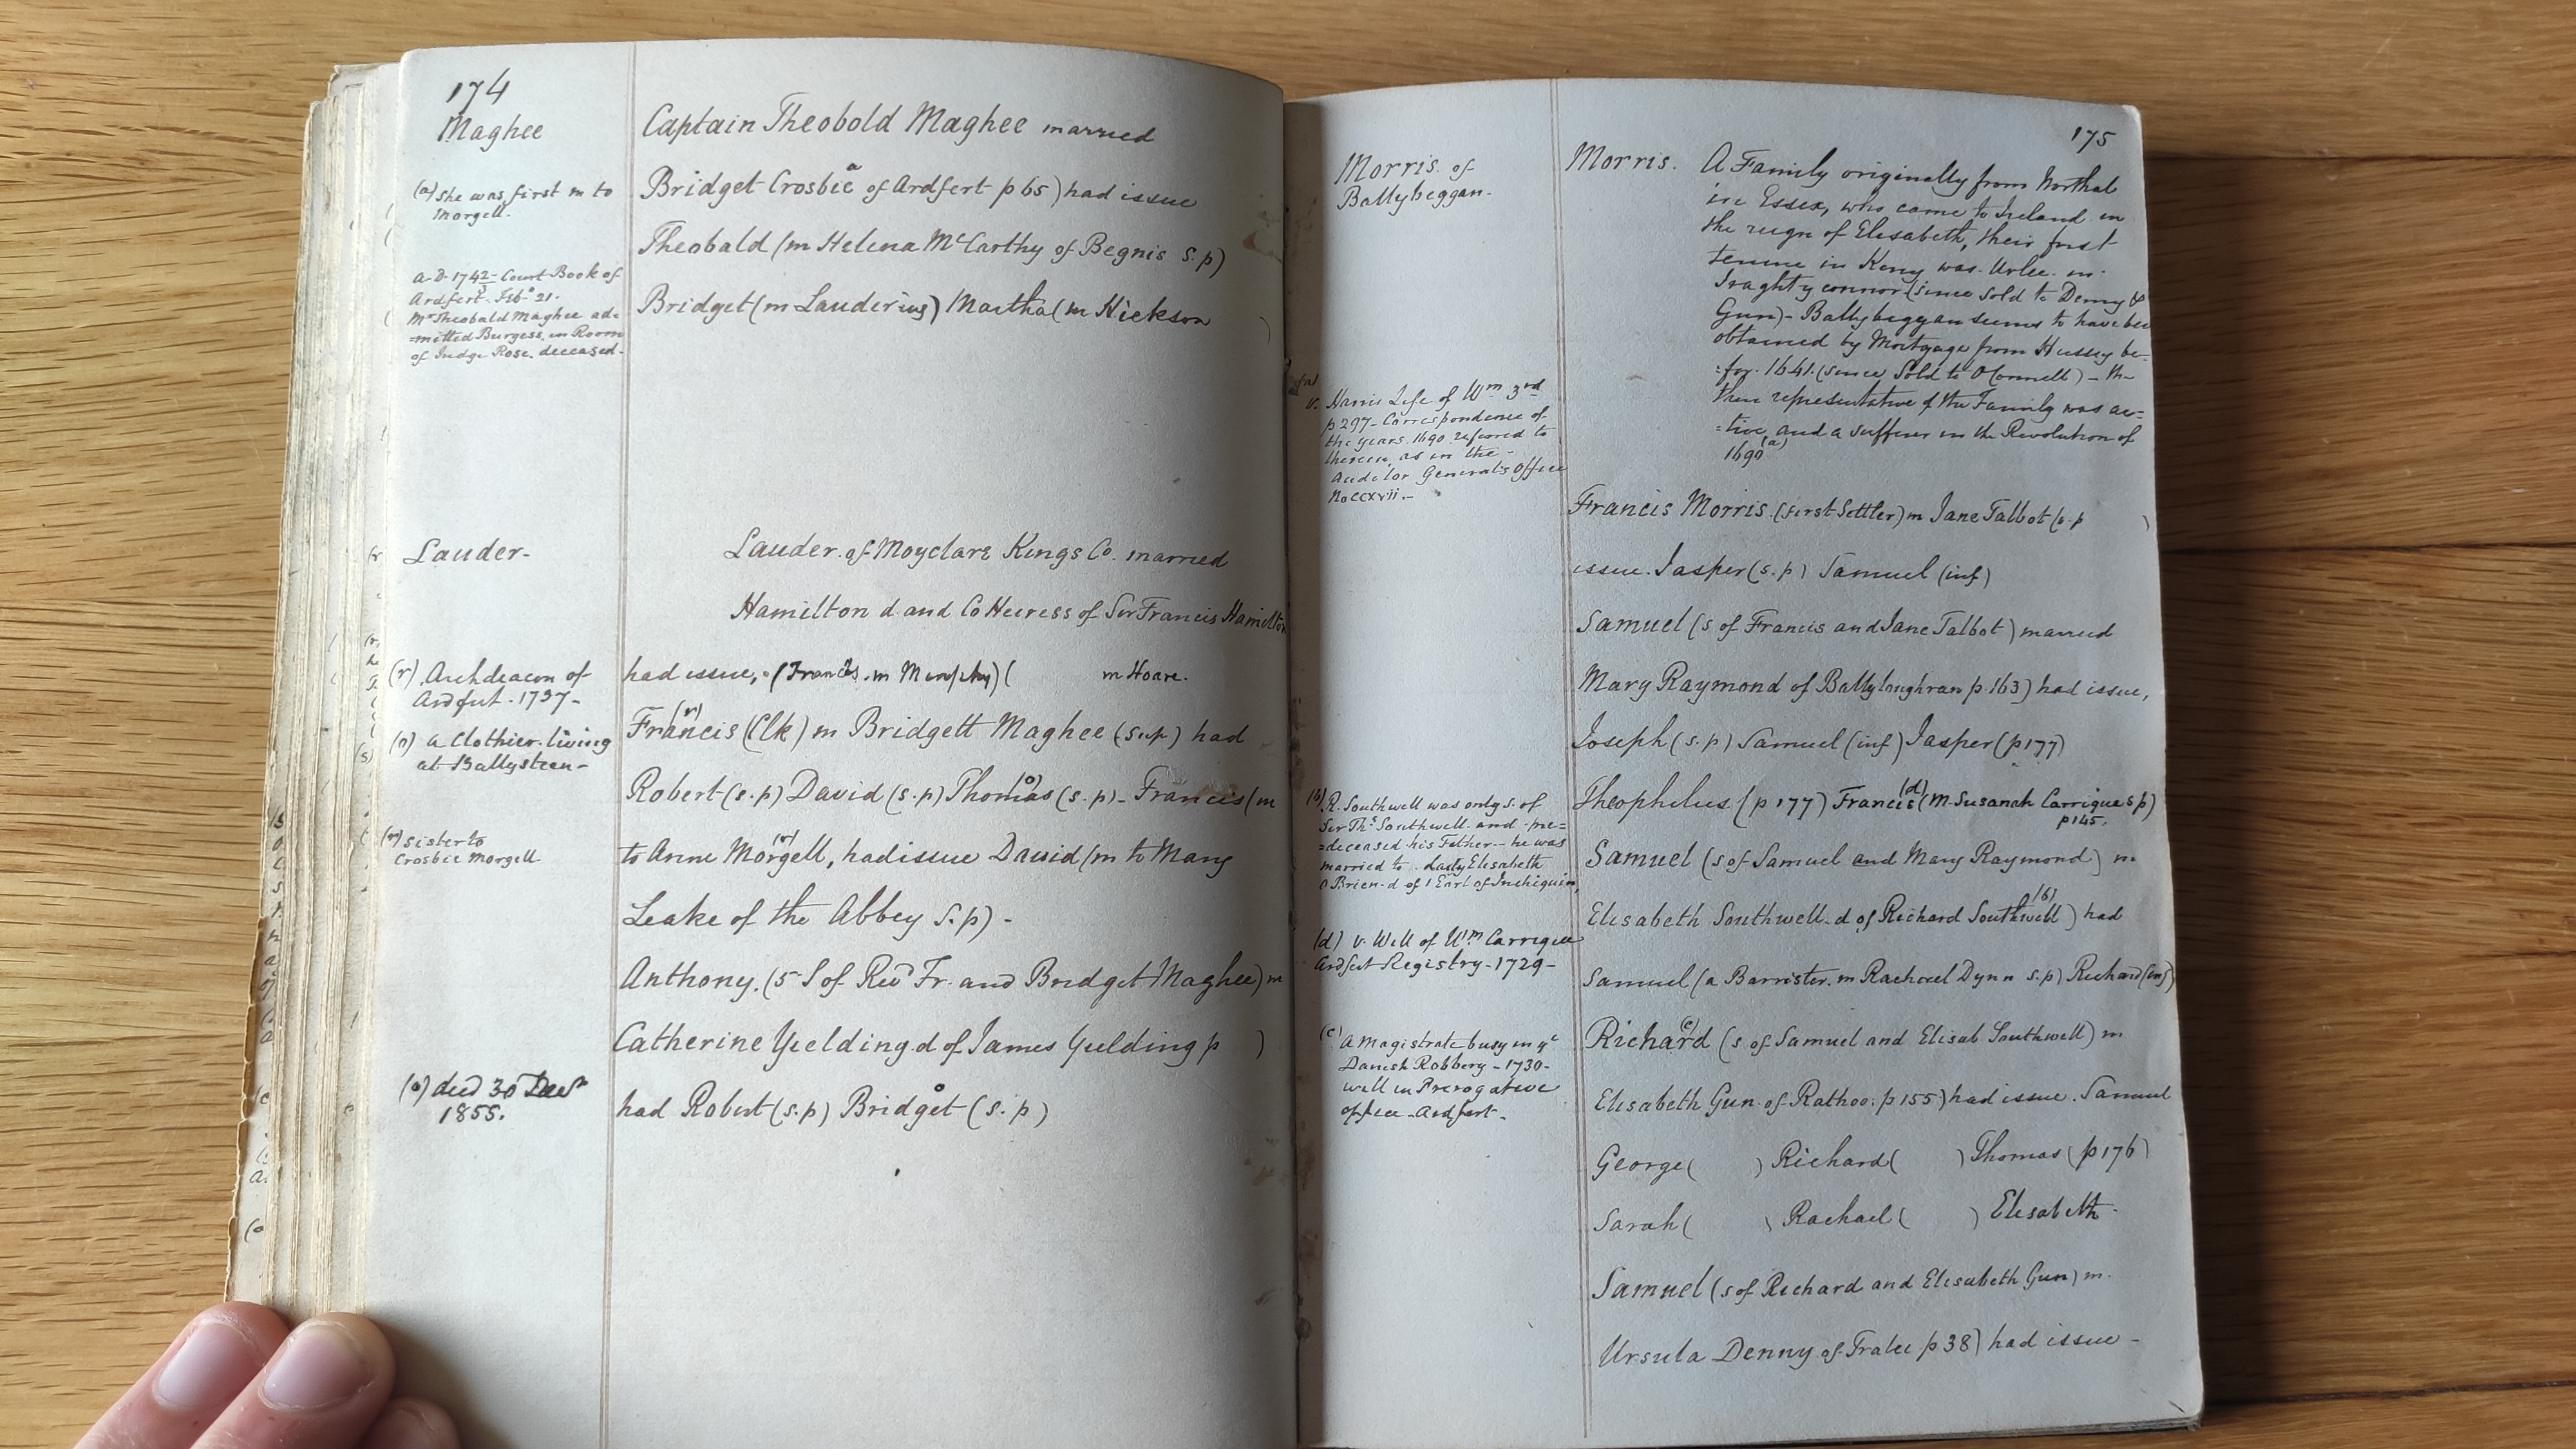 174
Maghee
Captain Theobold Maghee married
(a) She was first m to
Morgell.
Bridget Crosbie a of Ardfert p 65) had issue
Theobald (m Helena McCarthy of Begnis s.p)
A.D. 1742 - Court Book of
Ardfert. Feb. 21.
Mr Theobald Maghee ad-
=mitted Burgess, in Room
of Judge Rose, deceased-
Bridget (m Lauder ) Martha (m Hickson )
Lauder-
Lauder of Moyclare Kings Co. married
Hamilton d. and CoHeiress of Sir Francis Hamilton
(r) Archdeacon of
Ardfert. 1737-
had issue, (Frances m Murphy) ( m Hoare.
Francis (r) (Clk) m Bridgett Maghee (sup) had
(o) a Clothier living
at Ballysteen-
Robert (s.p) David (s.p) Thomas (o) (s.p) - Francis (m
(m) Sister to
Crosbie Morgell
to Anne Morgell, had issue David (m to Mary
Leake of the Abbey s.p) -
Anthony. (5 S of Revd Fr. and Bridget Maghee) m
Catherine Yielding d of James Yielding p )
(o) died 30
1855.
had Robert (s.p) Bridget o (s.p)
175
Morris of
Ballybeggan-
Morris. A Family originally from Northal
in Essex, who came to Ireland in
the reign of Elisabeth, their first
tenure in Kerry was Urlee in
Iraghtyconnor (since sold to Denny &
Gun) - Ballybeggan seems to have been
obtained by Mortgage from Hussey be-
=for. 1641. (since Sold to OConnell) - th-
then representative of the Family was ac=
=tive, and a sufferer in the Revolution of
1690 (a)
(a)
v. Harris Life of Wm 3rd
p 297- Correspondence of
the years 1690 referred to
therein, as in the -
Auditor Generals Office
No ccxvii.-
Francis Morris (first Settler) m Jane Talbot (s.p )
issue. Jasper (s.p) Samuel (inf)
Samuel (s of Francis and Jane Talbot) married
Mary Raymond of Ballyloughran p.163) had issue,
Joseph (s.p) Samuel (inf) Jasper (p177)
Theophilus (p 177) Francis (d) (m Susanah Carrigue s p)
p 145.
(b) R. Southwell was only s. of
Sir Ths Southwell and pre=
=deceased his Father - he was
married to Lady Elisabeth
O Brien d of 1 Earl of Inchiquin,
Samuel (s of Samuel and Mary Raymond) m.
Elisabeth Southwell d of Richard Southwell (b) ) had
(d) v. Will of Wm Carrigue
Ardfert Registry - 1729-
Samuel (a Barrister m Rachael Dynn s.p) Richard (inf)
(c) A Magistrate busy in ye
Danish Robbery - 1730-
will in Prerogative
office - Ardfert-
Richard (c) (s of Samuel and Elisab Southwell) m
Elisabeth Gun of Rathoo. p 155) had issue. Samuel
George ( ) Richard ( ) Thomas (p 176)
Sarah ( ) Rachael ( ) Elisabeth.
Samuel (s of Richard and Elisabeth Gun) m.
Ursula Denny of Tralee p 38) had issue -